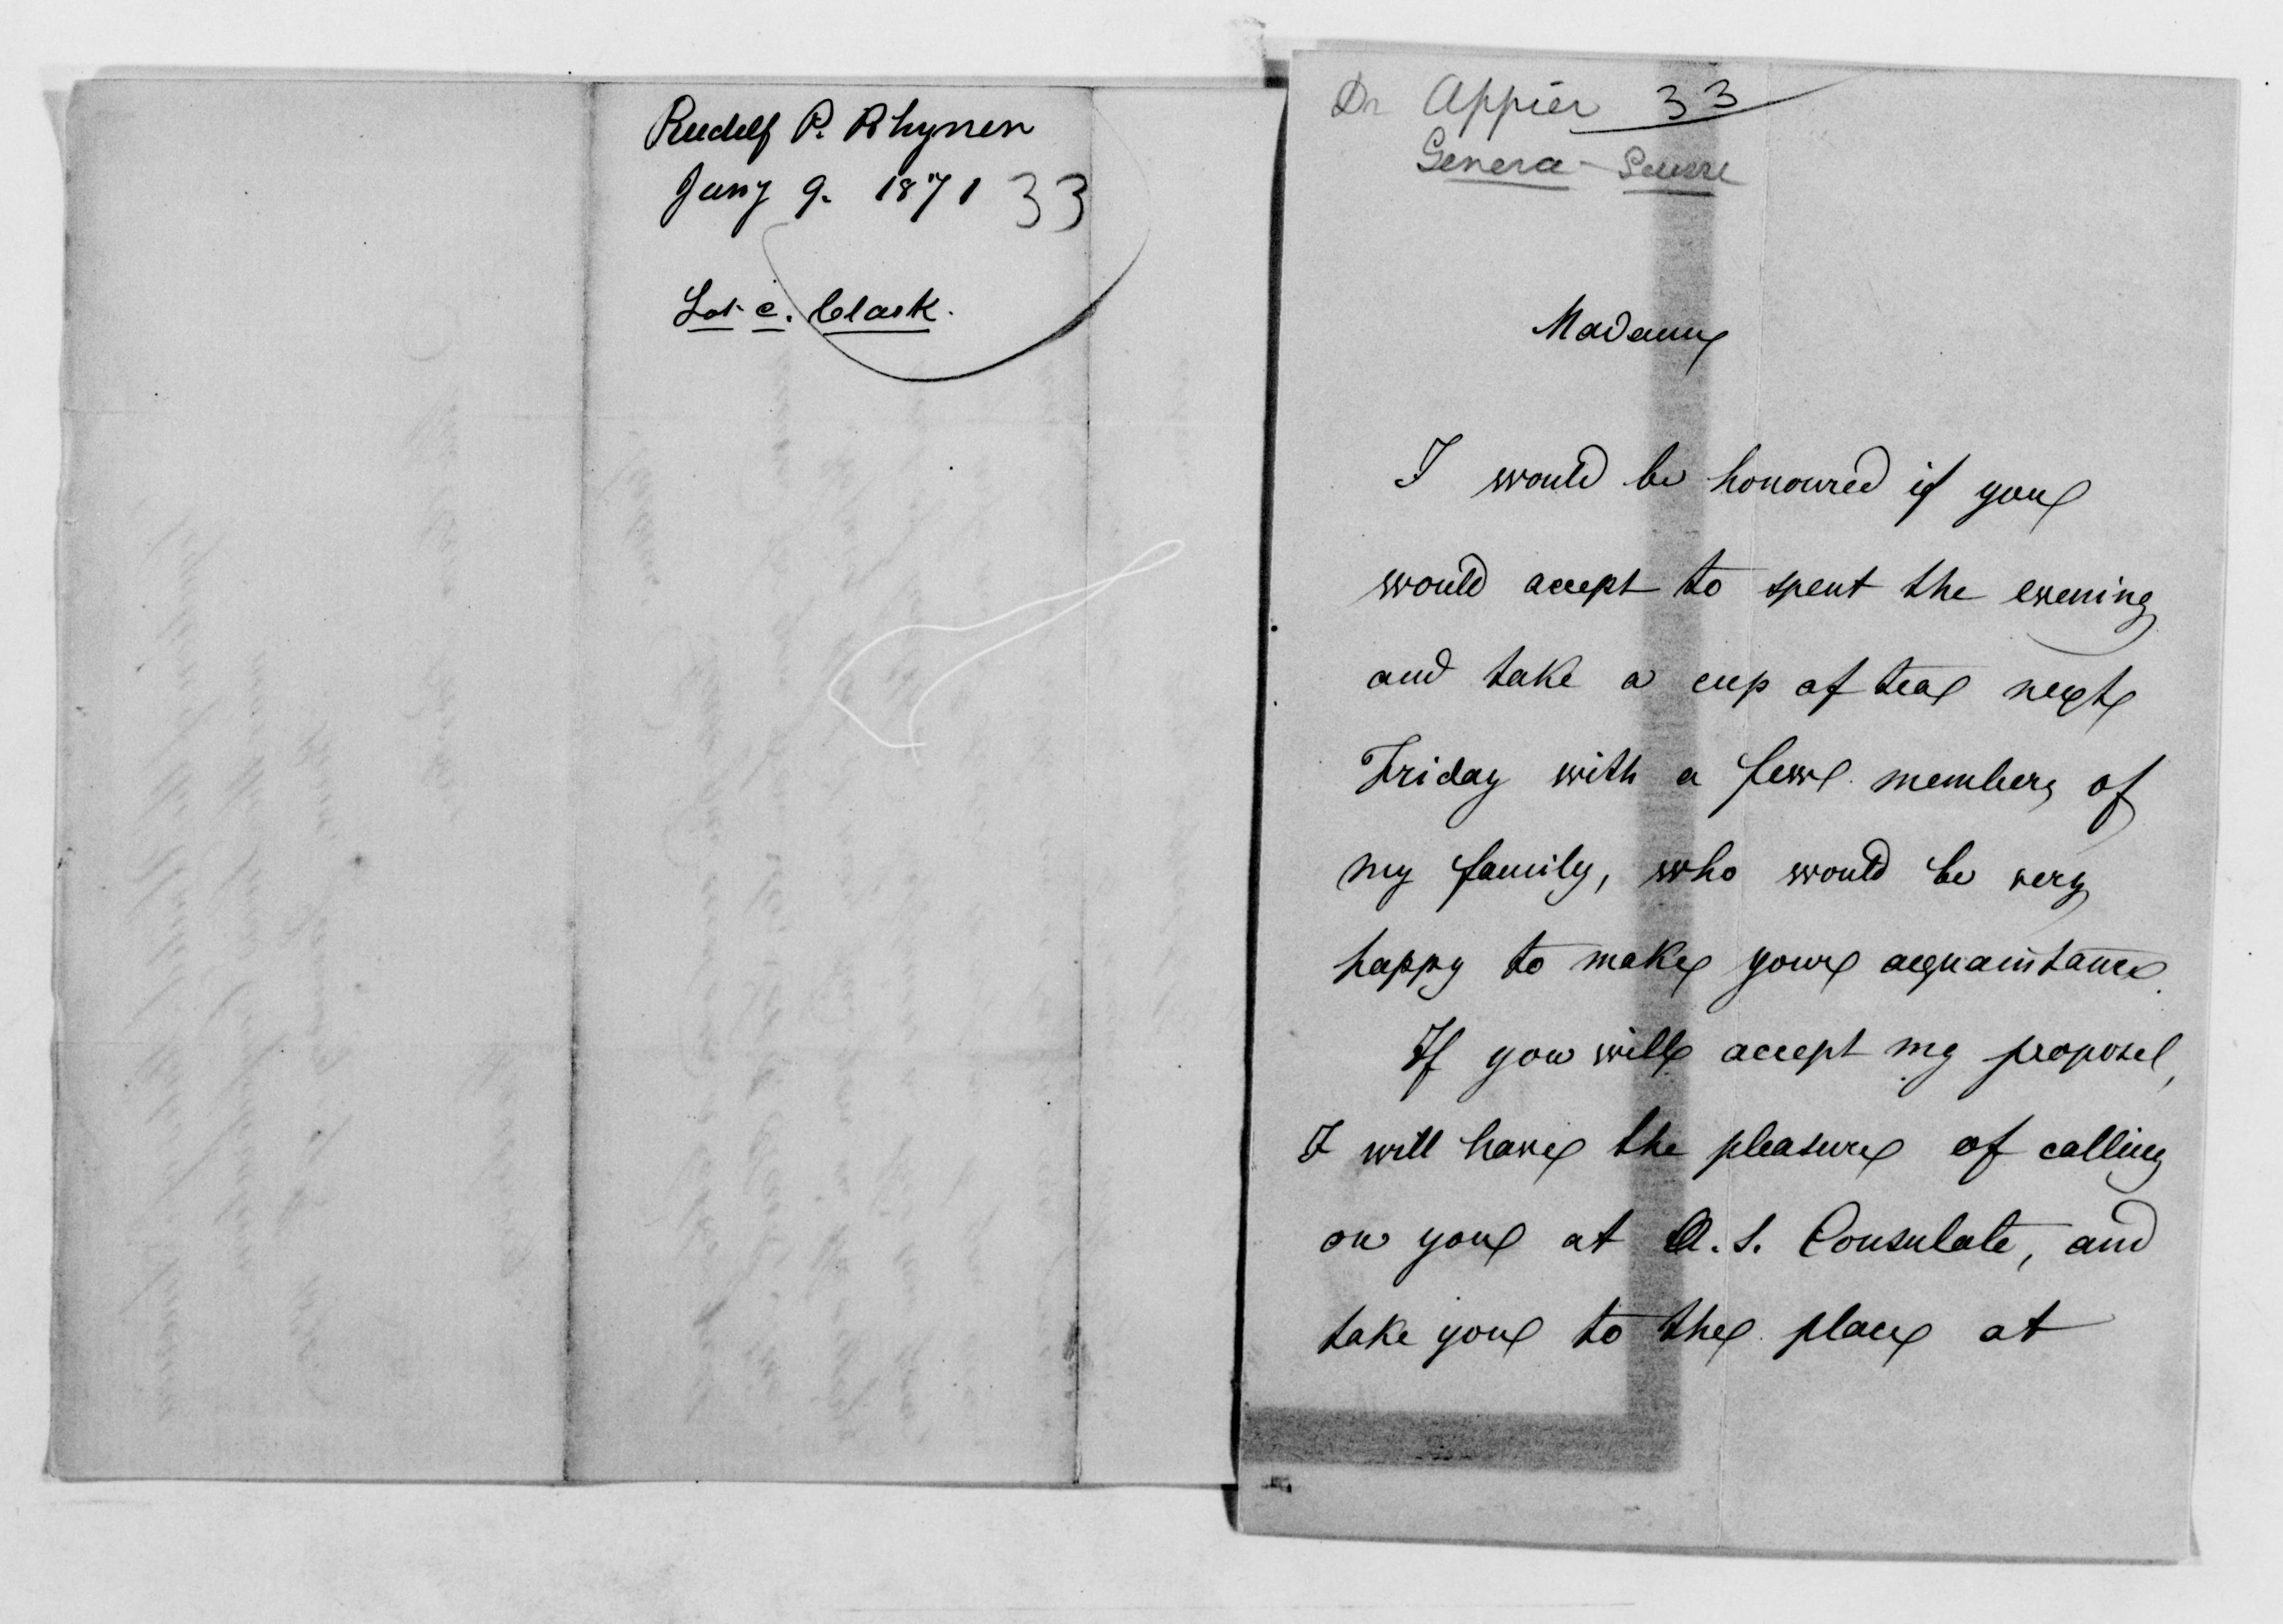 Rudolf P. Rhyner
Jany 9. 1871 33
Lot c. Clark.
Dr Appier 33
Geneva - Suisse
Madame
I would be honoured if you
would accept to spent the evening
and take a cup of tea next
Friday with a few members of
my family, who would be very
happy to make your acquaintance.
If you will accept my proposel,
I will have the pleasure of calling
on you at U.S. Consulate, and
take you to the place at